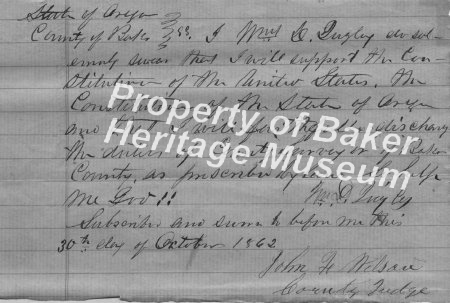 State of Oregon
County of Baker ss. I Wm C. Quigley do sol-
emnly swear that I will support the Con-
stitution of the United States, the
Constitution of the State of Oregon
and that I will discharge
the duties of County Surveyor of Baker
County, as prescribed by law So help
me God!!
Subscribed and sworn to before me this
30th day of October 1862
John H Wilson
County Judge
Property of Baker
Heritage Museum